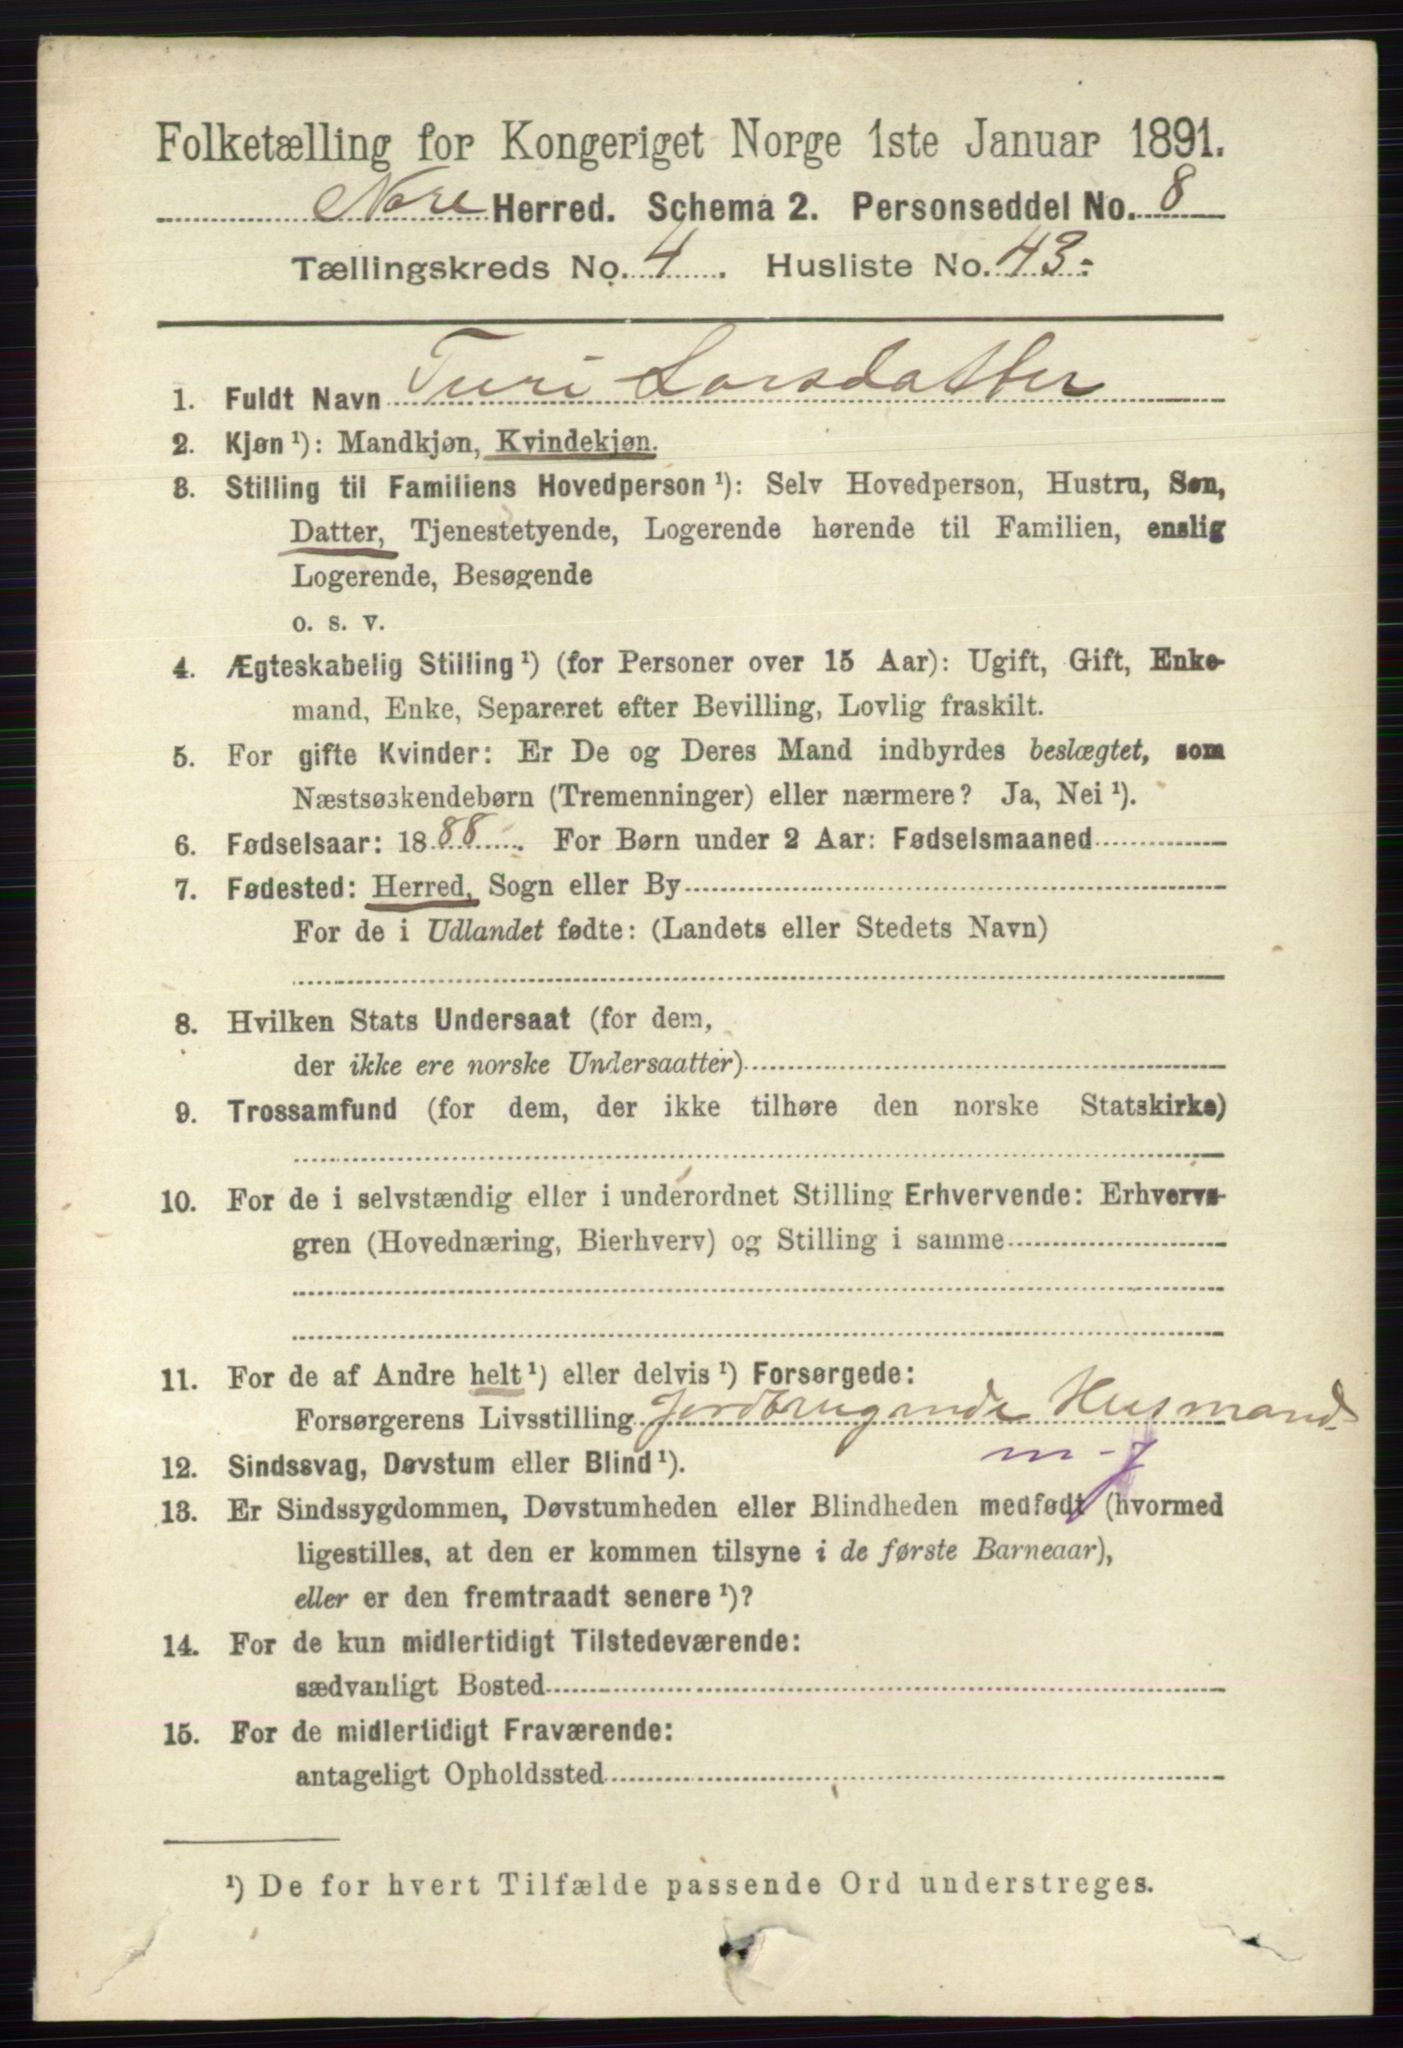 Folketælling for Kongeriget Norge 1ste Januar 1891.
Nore Herred. Schema 2. Personseddel No. 8
Tællingskreds No. 4. Husliste No. 43.
1. Fuldt Navn Turi Larsdatter
2. Kjøn ¹): Mandkjøn, Kvindekjøn.
3. Stilling til Familiens Hovedperson ¹): Selv Hovedperson, Hustru, Søn,
Datter, Tjenestetyende, Logerende hørende til Familien, enslig
Logerende, Besøgende
o. s. v.
4. Ægteskabelig Stilling ¹) (for Personer over 15 Aar): Ugift, Gift, Enke-
mand, Enke, Separeret efter Bevilling, Lovlig fraskilt.
5. For gifte Kvinder: Er De og Deres Mand indbyrdes beslægtet, som
Næstsøskendebørn (Tremenninger) eller nærmere? Ja, Nei ¹).
6. Fødselsaar: 1888. For Børn under 2 Aar: Fødselsmaaned
7. Fødested: Herred, Sogn eller By
For de i Udlandet fødte: (Landets eller Stedets Navn)
8. Hvilken Stats Undersaat (for dem,
der ikke ere norske Undersaatter)
9. Trossamfund (for dem, der ikke tilhøre den norske Statskirke)
10. For de i selvstændig eller i underordnet Stilling Erhvervende: Erhvervs-
gren (Hovednæring, Bierhverv) og Stilling i samme
11. For de af Andre helt ¹) eller delvis ¹) Forsørgede:
Forsørgerens Livsstilling Jordbrugende Husmand
m-j
12. Sindssvag, Døvstum eller Blind ¹).
13. Er Sindssygdommen, Døvstumheden eller Blindheden medfødt (hvormed
ligestilles, at den er kommen tilsyne i de første Barneaar),
eller er den fremtraadt senere ¹)?
14. For de kun midlertidigt Tilstedeværende:
sædvanligt Bosted
15. For de midlertidigt Fraværende:
antageligt Opholdssted
¹) De for hvert Tilfælde passende Ord understreges.